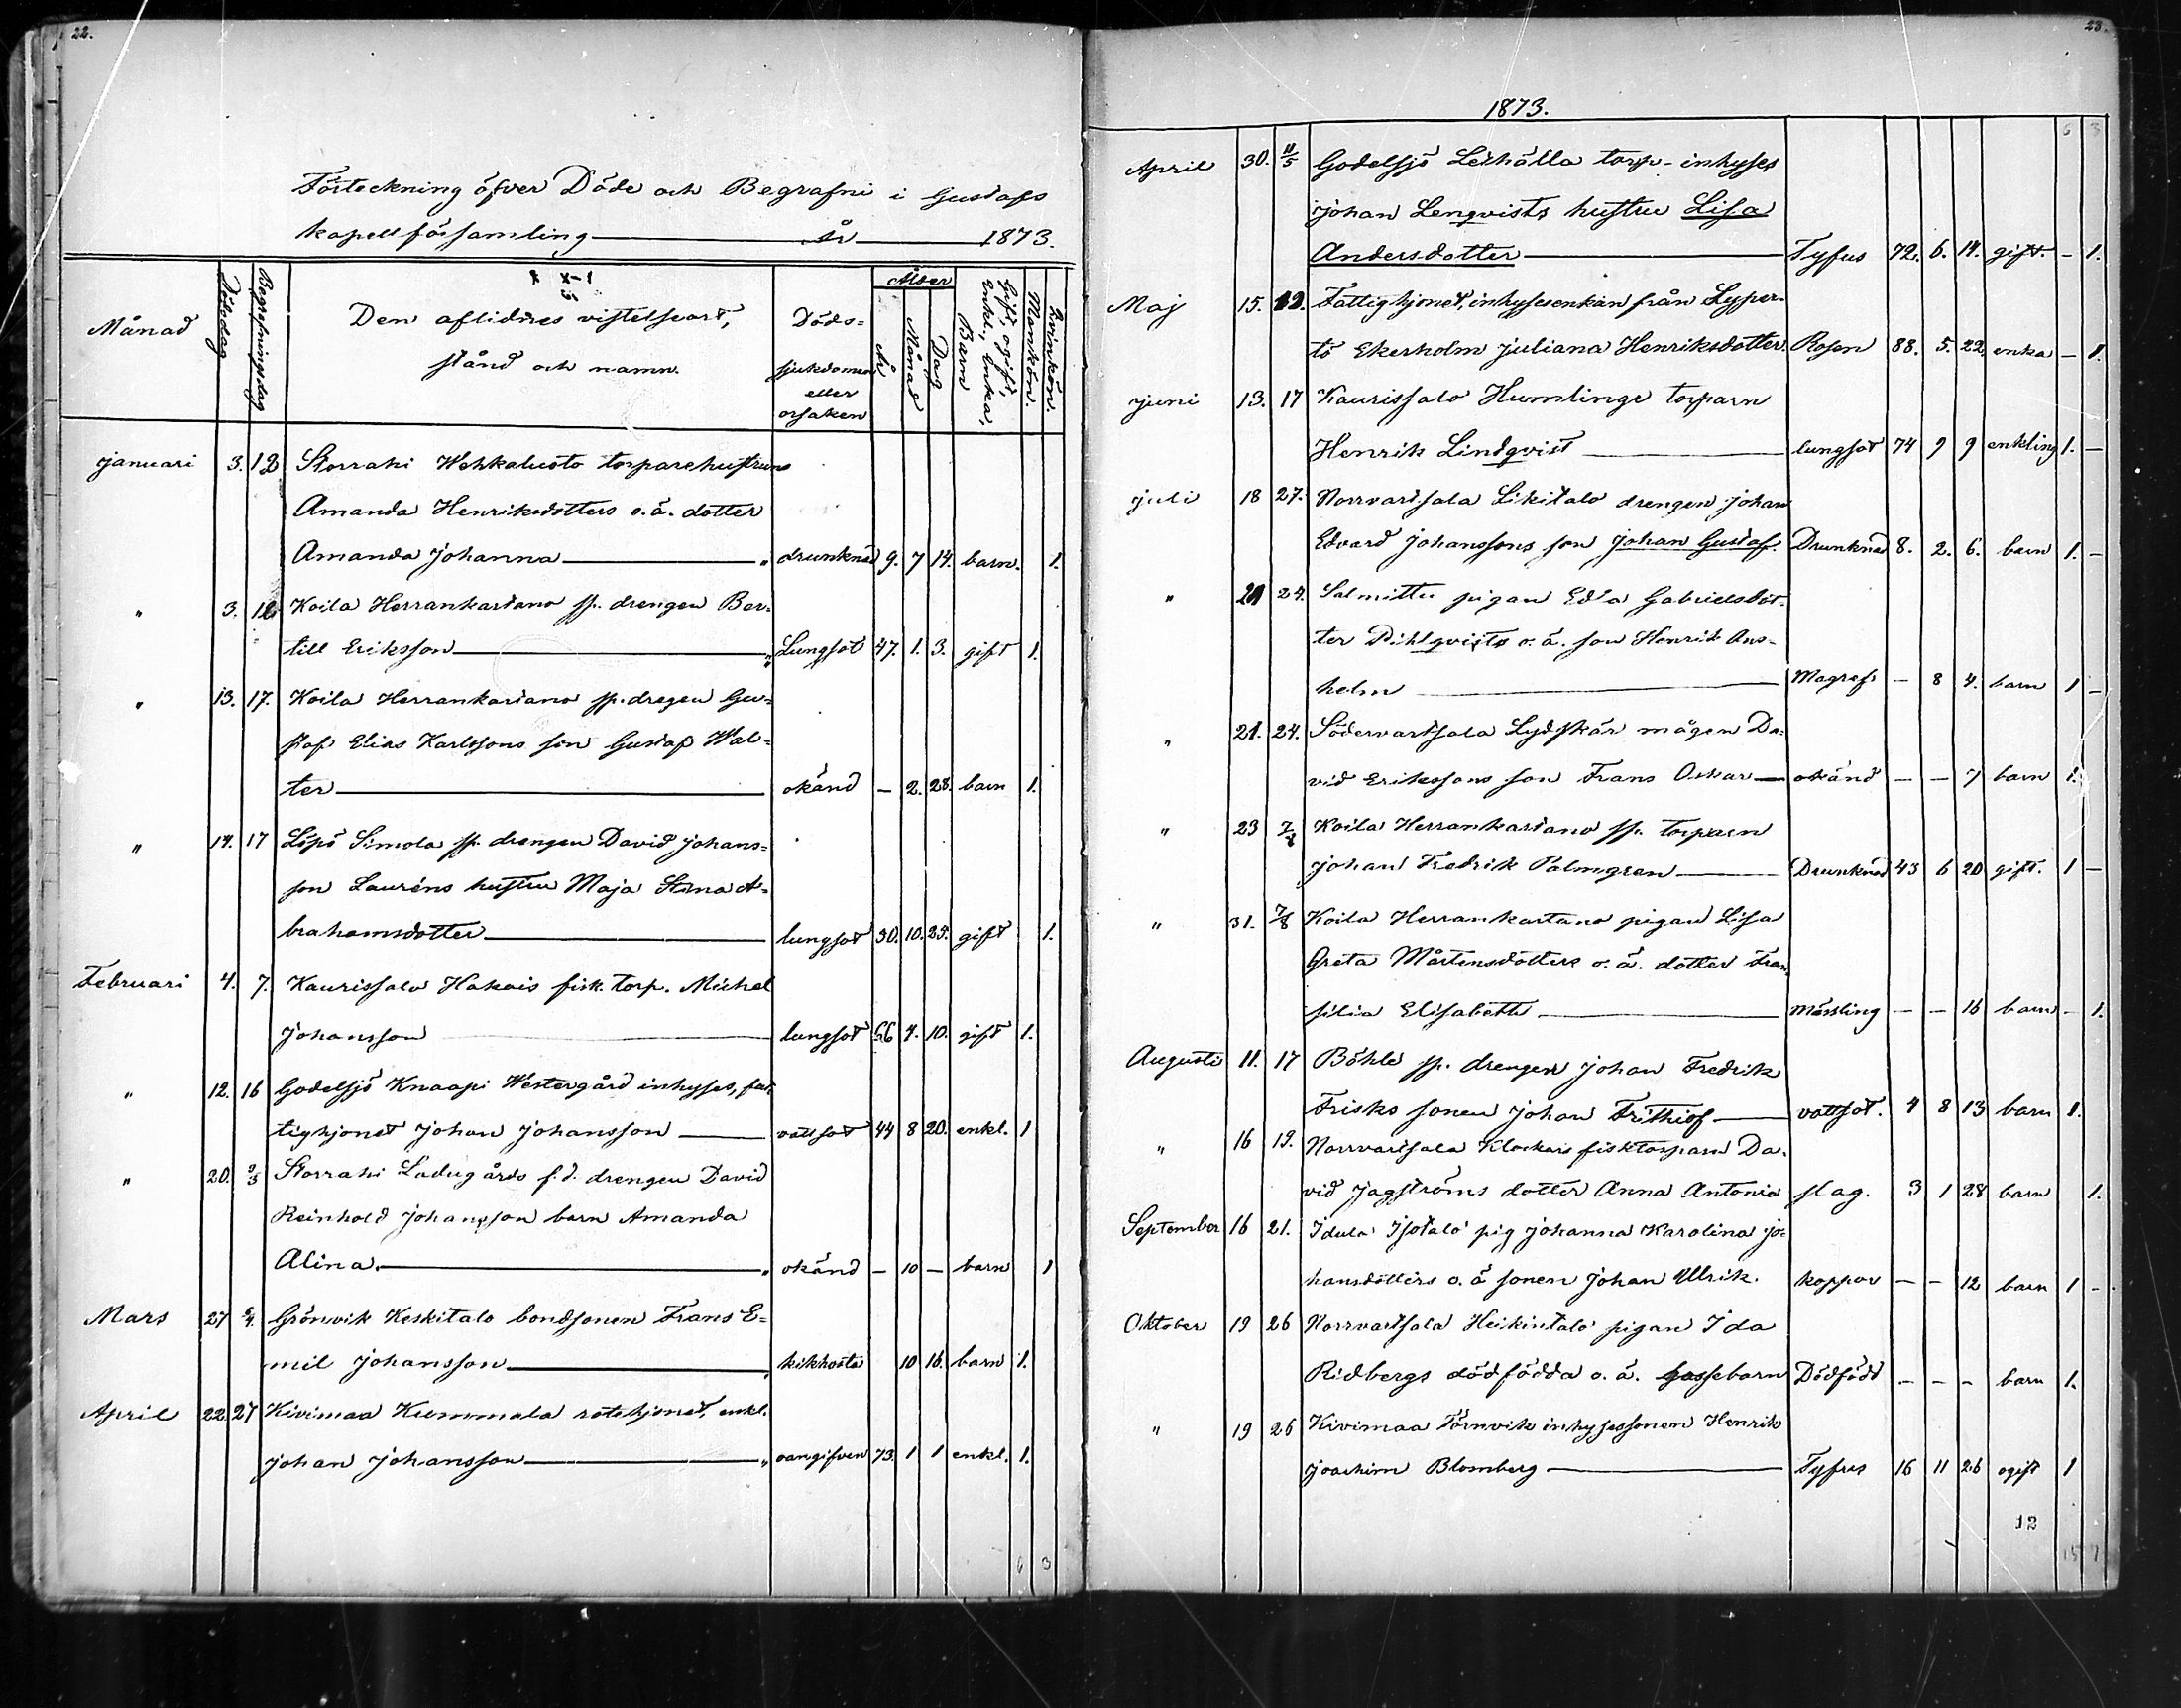 22.
Förteckning öfver Döde och Begrafne i Gustafs
kapellförsamling År 1873.
Månad Dödsdag Begrafningsdag Den aflidnes vistelseort, stånd och namn. Döds- sjukdomen eller orsaken Ålder År Månad Dag Gift, ogift, Enkl., Enka, Barn Mankön. Kvinkön.
Januari 3. 12 Storrahi torparehustruns
Amanda Henriksdotters o. ä. dotter
Amanda Johanna drunknad 9. 7 14. barn. 1.
" 3. 12 Koila Herrankartano sp. drengen Ber-
till Eriksson Lungsot 47. 1. 3. gift 1.
" 13. 17. Koila Herrankartano sp. drengen Gu-
staf Elias Karlssons son Gustaf Wal-
ter okänd — 2. 28. barn 1.
" 14. 17 Löpö Simola sp. drengen David Johans-
son Lauréns hustru Maja Stina A-
brahamsdotter lungsot 30. 10. 25. gift 1.
Februari 4. 7. Kaurissalo Hakais fisk. torp. Michel
Johansson lungsot 56 4. 10. gift 1.
" 12. 16 Godelsjö Knaapi Westergård inhyses, fat-
tighjonet Johan Johansson vattsot 44 8 20. enkl. 1
" 20. Storrahi Ladugårds f. d. drengen David
Reinhold Johansson barn Amanda
Alina. okänd — 10 — barn 1
Mars 27 Grönvik Keskitalo bondsonen Frans E-
mil Johansson kikhosta 10 16. barn 1.
April 22. 27 Kivimaa Kummala rotehjonet, enkl.
Johan Johansson oangifven 73. 1 1 enkl. 1.
6 3
23.
1873.
6 3
April 30. 11/5 Godelsjö Leihälla torp- inhyses
Johan Lenqvists hustru Lisa
Andersdotter Tyfus 72. 6. 14. gift. — 1.
Maj 15. Fattighjonet, inhysesenkan från Lyper-
tö Ekerholm Juliana Henriksdotter. Rosen 88. 5. 22. enka — 1.
Juni 13. 17 Kaurissalo Humlinge torparn
Henrik Lindqvist lungsot 74 9 9 enkling 1. —
Juli 18 27. Norrvartsala Likitalo drengen Johan
Edvard Johanssons son Johan Gustaf. Drunknad 8. 2. 6. barn 1. —
" 24. Salmittu pigan Edla Gabrielsdot-
ter Pihlqvists o. ä. son Henrik Ans-
helm Magref. — 8 4. barn 1 —
" 21. 24. Södervartsala Lydskär mågen Da-
vid Erikssons son Frans Oskar okänd — — 7 barn 1.
" 23 Koila Herrankartano sp. torparn
Johan Fredrik Palmgren Drunknad 43 6 20 gift. 1 —
" 31. 7/8 Koila Herrankartano pigan Lisa
Greta Mårtensdotters o. ä. dotter Fran-
silia Elisabeth Mässling — — 16 barn — 1.
Augusti 11. 17 Böhle sp. drengen Johan Fredrik
Frisks sonen Johan Frithiof vattsot. 4 8 13 barn 1.
" 16 19. Norrvartsala Klockars fisktorparn Da-
vid Jagströms dotter Anna Antonia slag. 3 1 28 barn 1.
September 16 21. Idula Isotalo pig Johanna Karolina Jo-
hansdotters o. ä sonen Johan Ulrik. koppor — — 12 barn 1 -
Oktober 19 26 Norrvartsala Heikintalo pigan Ida
Ridbergs dödfödda o. ä. gossebarn Dödfödd — — — barn 1.
" 19 26 Kivimaa Törnvik inhysessonen Henrik
Joachim Blomberg Tyfus 16 11 26 ogift 1
12
15 7